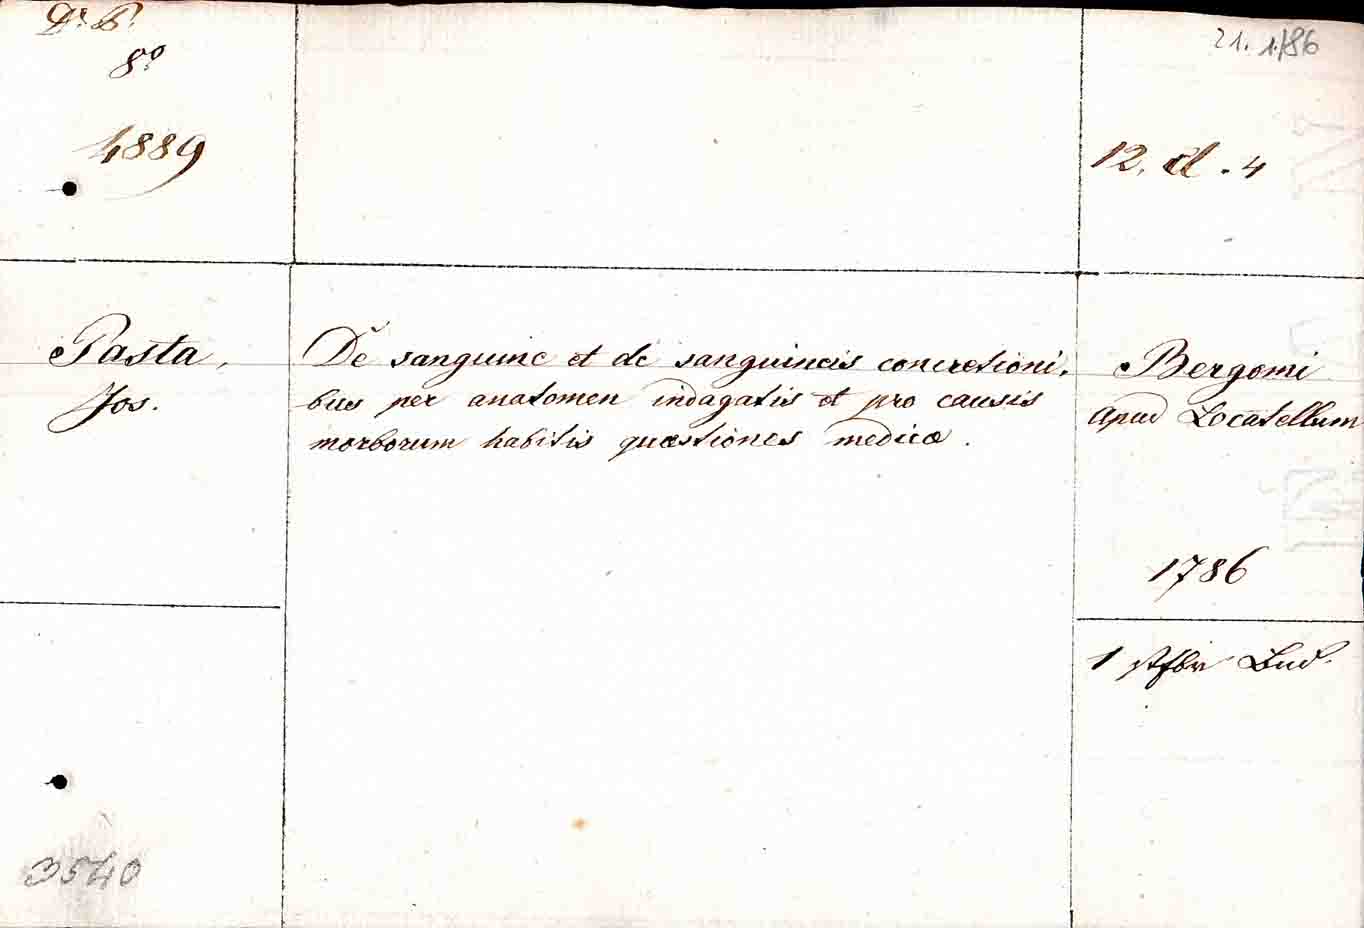 8º
4889
21. 1/86
12. d. 4
Pasta,
Jos.
De sanguine et de sanguineis concretioni-
bus per anatomen indagatis et pro causis
morborum habitis quæstiones medicæ.
Bergomi
apud Locatellum
1786
1
3540